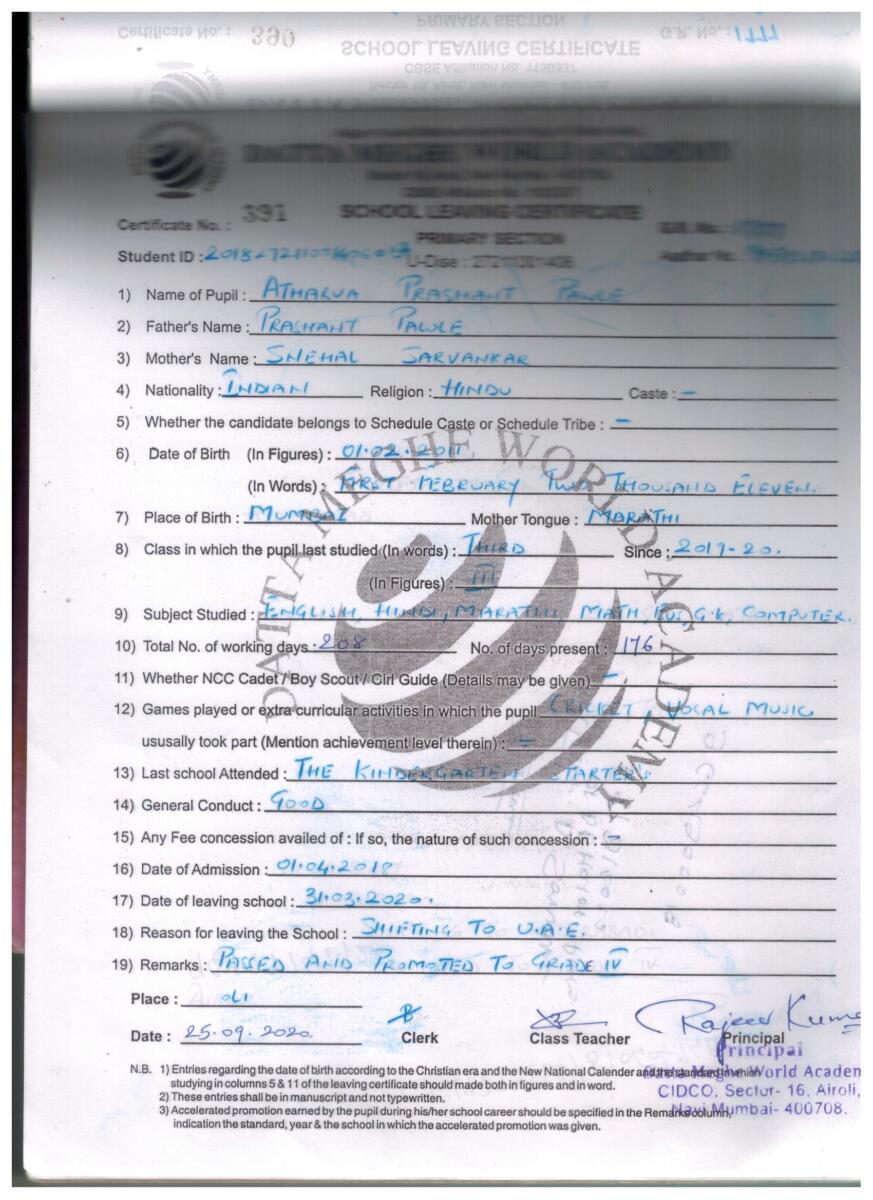 PRIMARY SECTION
Certificate No. : 390
G.R. No. : 1777
SCHOOL LEAVING CERTIFICATE
CBSE Affiliation No. 1130337
DATTA MEGHE WORLD ACADEMY
Certificate No. : 391
SCHOOL LEAVING CERTIFICATE
G.R. No. :
PRIMARY SECTION
Student ID :
U-Dise :
1) Name of Pupil : ATHARVA PRASHANT PAWLE
2) Father's Name : PRASHANT PAWLE
3) Mother's Name : SNEHAL SARVANKAR
4) Nationality : INDIAN Religion : HINDU Caste : –
5) Whether the candidate belongs to Schedule Caste or Schedule Tribe : –
6) Date of Birth (In Figures) : 01.02.2011
(In Words) : FIRST FEBRUARY TWO THOUSAND ELEVEN.
7) Place of Birth : MUMBAI Mother Tongue : MARATHI
8) Class in which the pupil last studied (In words) : THIRD Since : 2019-20.
(In Figures) : III
9) Subject Studied : ENGLISH, HINDI, MARATHI, MATH, EVS, G.K, COMPUTER.
10) Total No. of working days : 208 No. of days present : 176
11) Whether NCC Cadet / Boy Scout / Girl Guide (Details may be given) –
12) Games played or extra curricular activities in which the pupil CRICKET, VOCAL MUSIC
ususally took part (Mention achievement level therein) : –
13) Last school Attended : THE KINDERGARTEN STARTERS
14) General Conduct : GOOD
15) Any Fee concession availed of : If so, the nature of such concession : –
16) Date of Admission : 01.04.2018
17) Date of leaving school : 31.03.2020.
18) Reason for leaving the School : SHIFTING TO U.A.E.
19) Remarks : PASSED AND PROMOTED TO GRADE IV
Place : OLI
Date : 25.09.2020
Rajeev Kuma
Clerk Class Teacher Principal
Principal
N.B. 1) Entries regarding the date of birth according to the Christian era and the New National Calender and the standard
Datta Meghe World Academ
studying in columns 5 & 11 of the leaving certificate should made both in figures and in word.
CIDCO, Sector- 16, Airoli,
2) These entries shall be in manuscript and not typewritten.
3) Accelerated promotion earned by the pupil during his/her school career should be specified in the Remarks column,
Navi Mumbai- 400708.
indication the standard, year & the school in which the accelerated promotion was given.
DATTA MEGHE WORLD ACADEMY